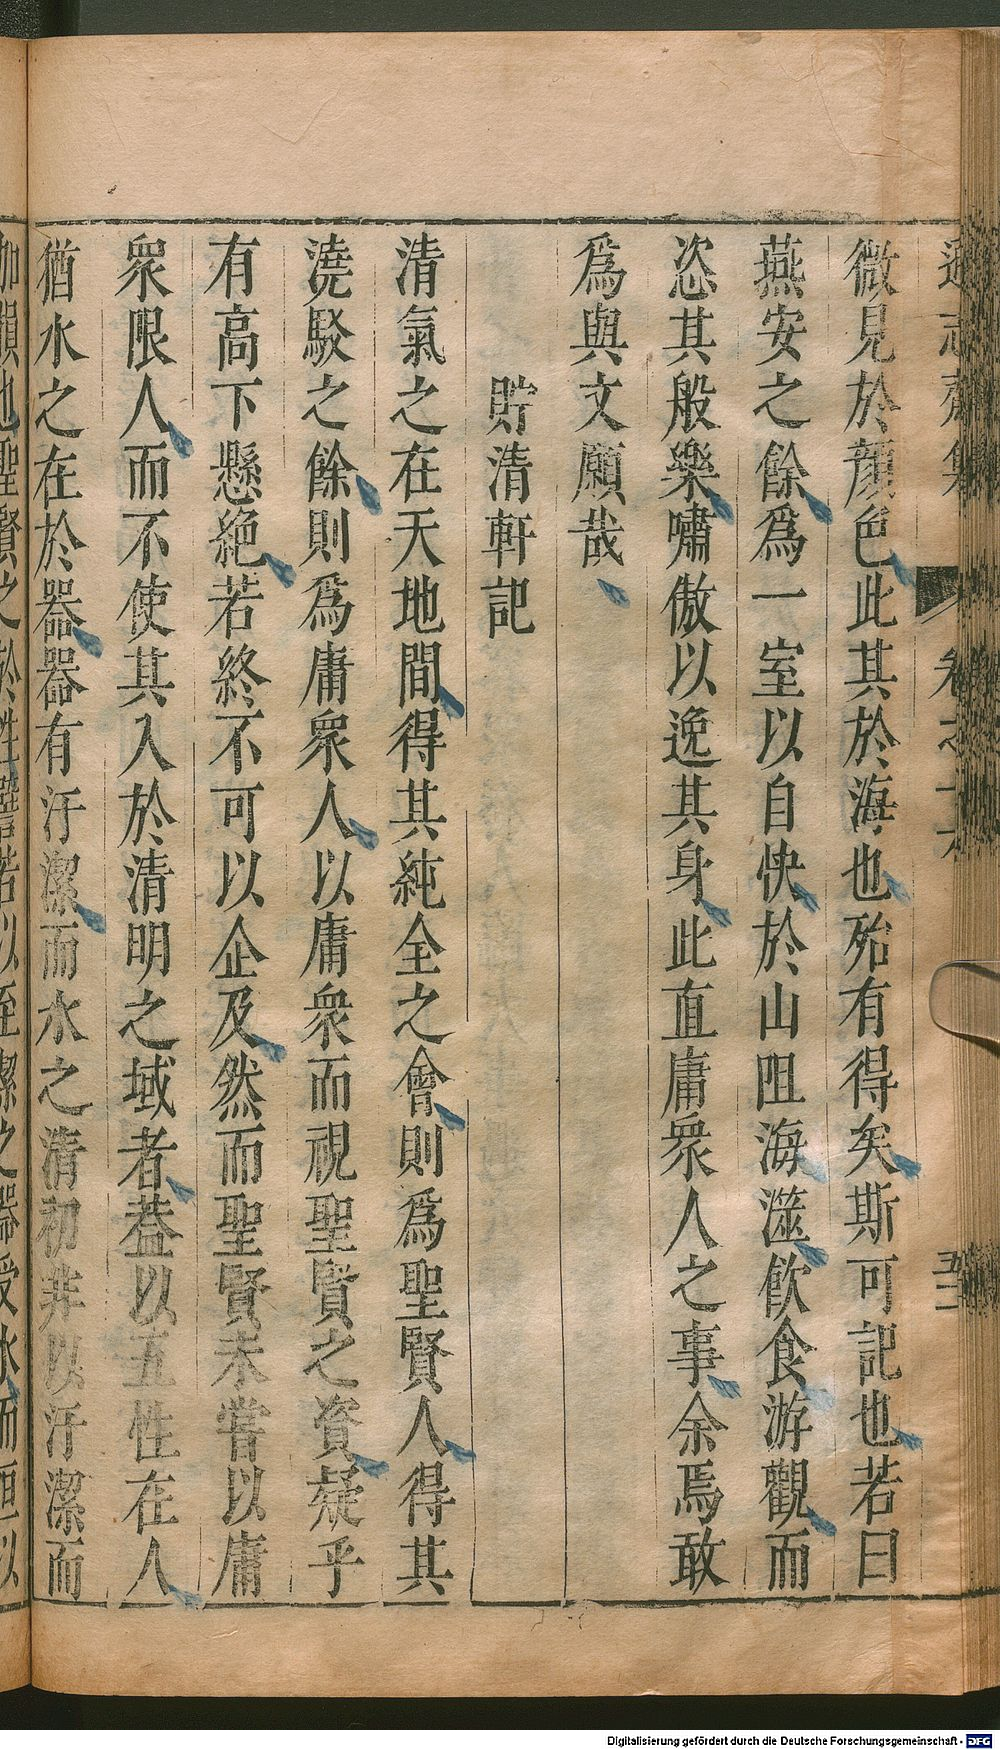 微見於顏色此其於海也殆有得矣斯可記也若曰
燕安之餘爲一室以自快於山岨海澨飲食游觀而
恣其般樂嘯傲以逸其身此直庸衆人之事余焉敢
爲與文願哉
貯清軒記
清氣之在天地間得其純全之會則爲聖賢人得其
澆駁之餘則爲庸衆人以庸衆而視聖賢之資疑乎
有高下懸絶若終不可以企及然而聖賢未嘗以庸
衆限人而不使其入於清明之域者葢以五性在人
猶水之在於器器有汙潔而水之清初非以汙潔而
加損也聖賢之於性譬若以至潔之器受水而恒以
Digitalisierung gefördert durch die Deutsche Forschungsgemeinschaft - DFG